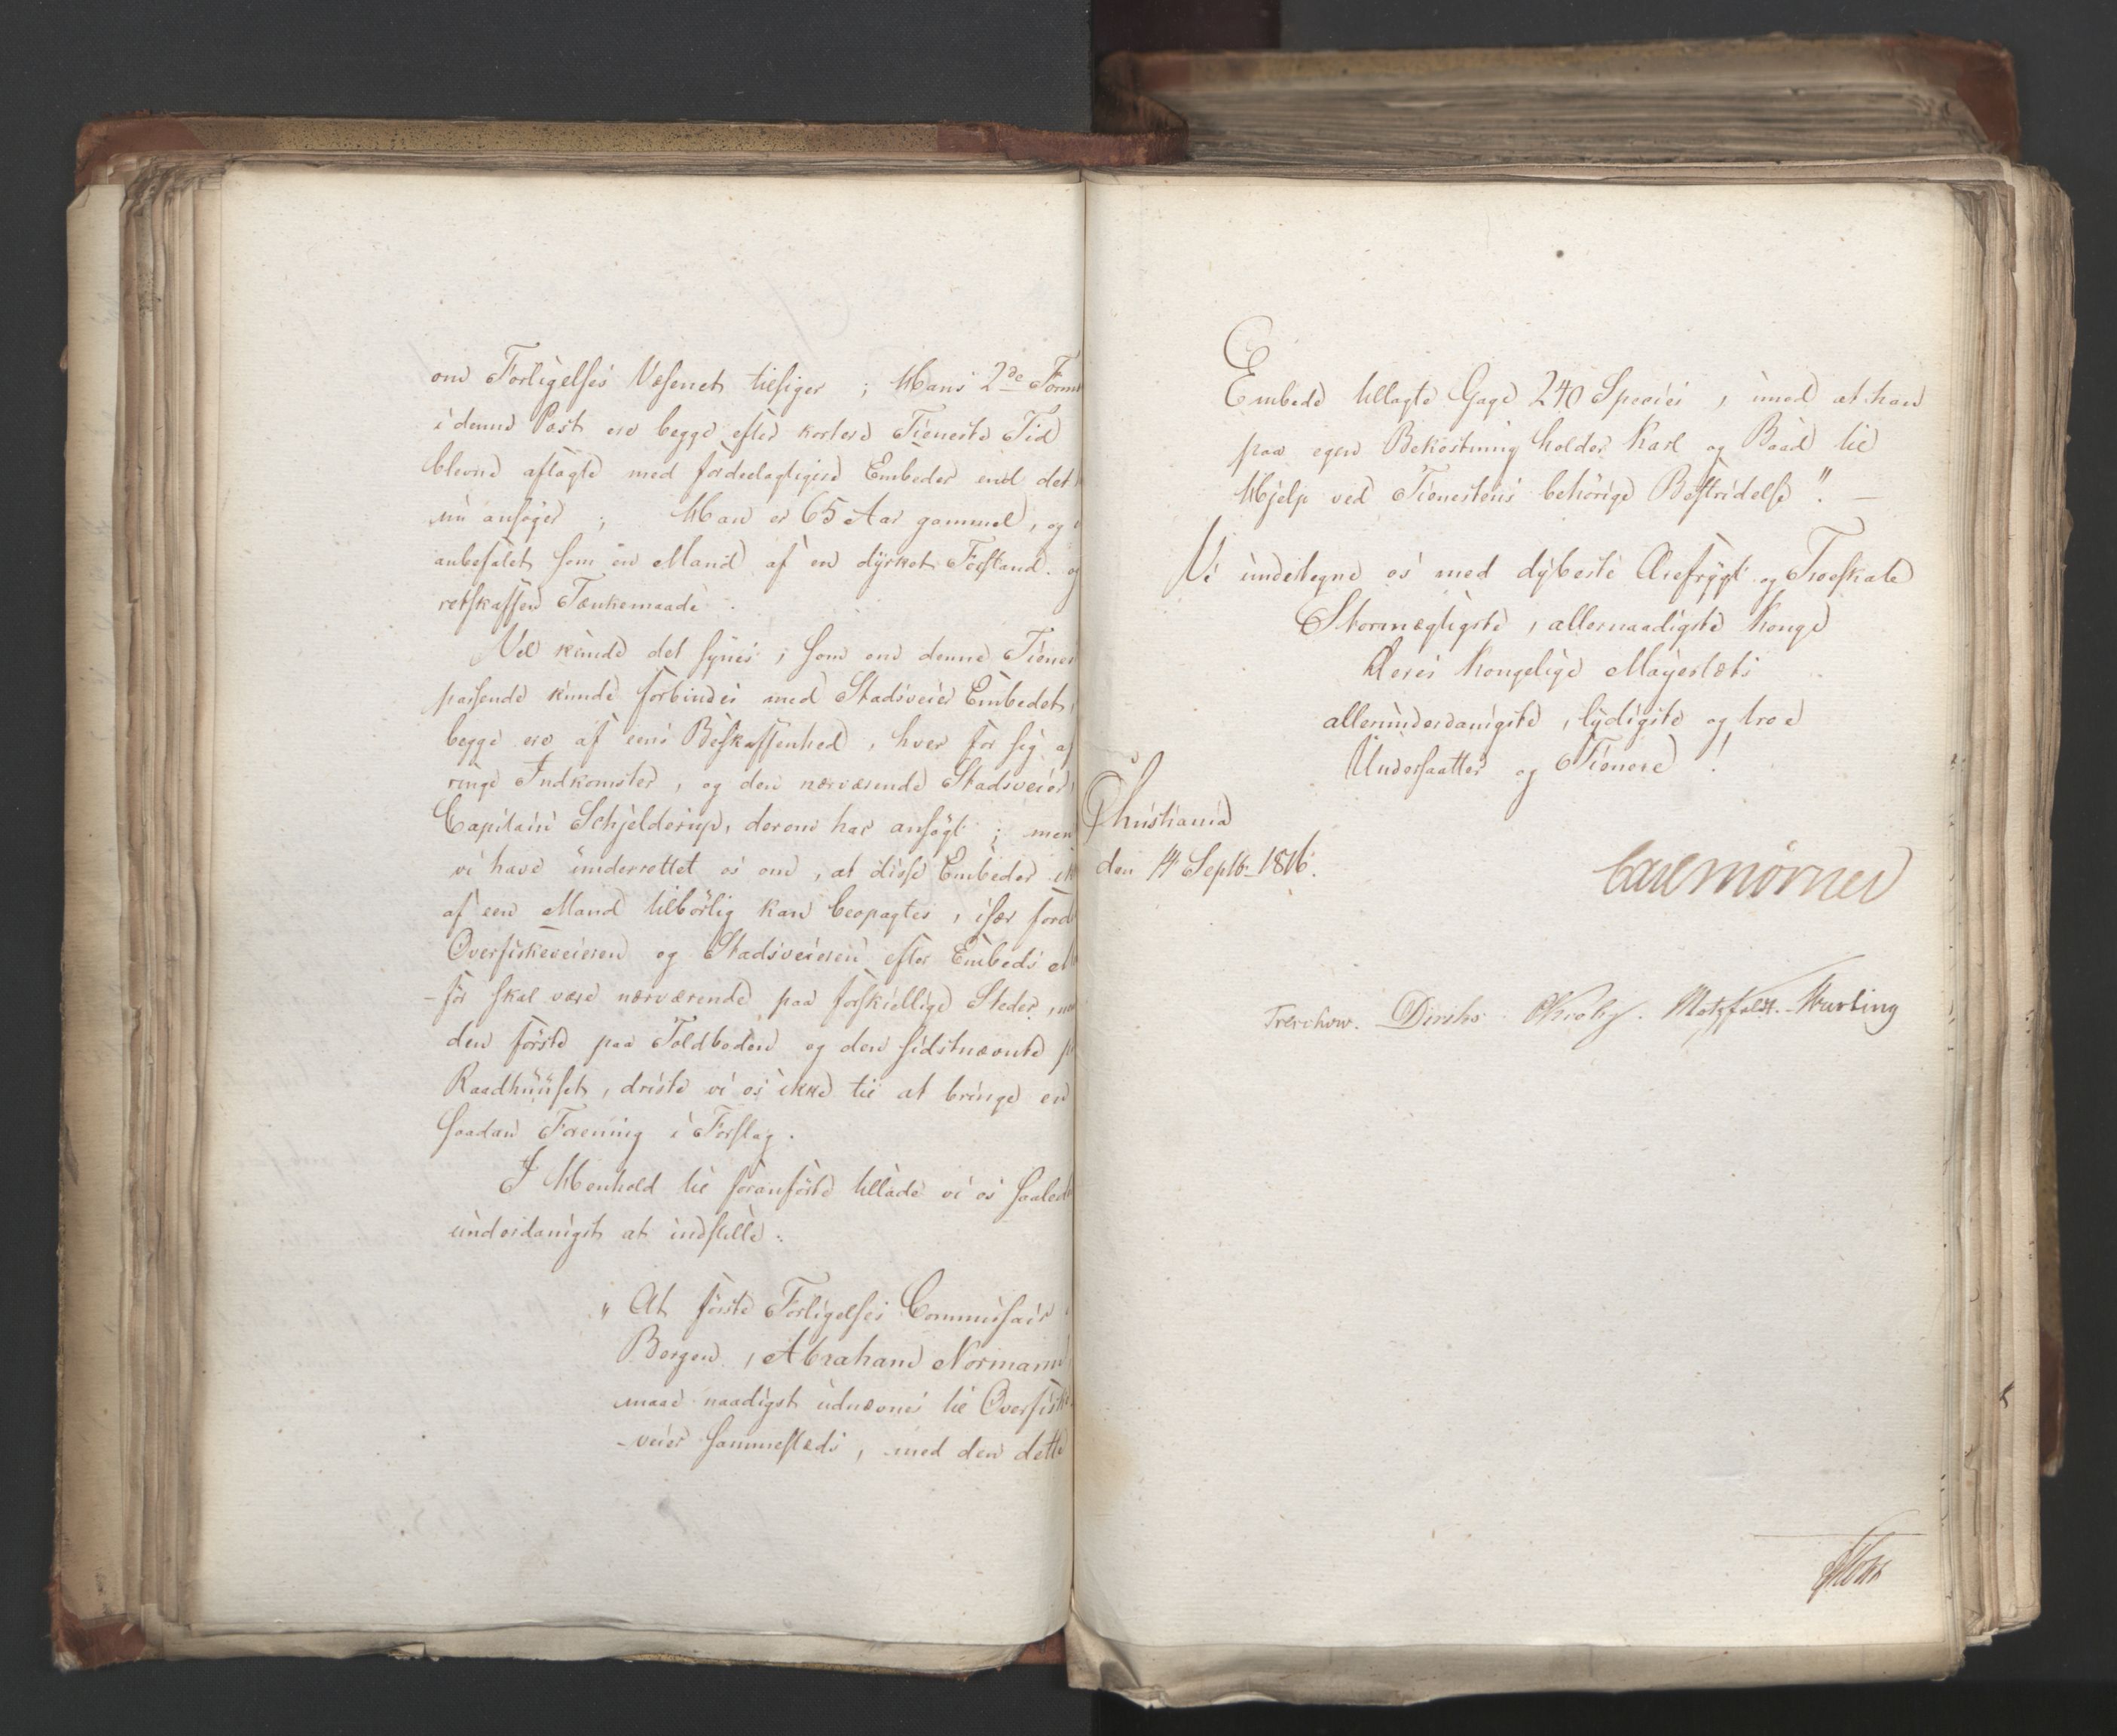 om Forligelses Væsenet tilsiger; Hans 2de Form
i denne Post ere begge efter kortere Tieneste Tid
blevne aflagte med fordeelagtigere Embeder end det
nu ansøger; Han er 65 Aar gammel, og
anbefalet som en Mand af en dyrket Forstand og
retskaffen Tænkemaade.
Vel kunde det synes, som om denne Tienes
passende kunde forbindes med Stadsveier Embedet,
begge ere af eens Beskaffenhed, hver for sig af
ringe Indkomster, og den nærværende Stadsveier
Capitain Schjelderup, derom har ansøgt; men
vi have underrettet os om, at disse Embeder ik
af een Mand tilbörlig kan beopagtes, især ford
Overfiskeveieren og Stadsveieren efter Embeds
för skal være nærværende paa forskiellige Steder,
den förste paa Toldboden og den sidstnævnte p
Raadhuuset, driste vi os ikke til at bringe en
saadan Forening i Forslag.
I Henhold til foranförte tillade vi os saaled
underdanigst at indstille:
"At förste Forligelses Commissair
Bergen, Abraham Normann
maae naadigst udnævnes til Overfiske
-veier sammestæds, med den dette
Embede tillagte Gage 240 Species, imod at han
paa egen Bekostning holder Karl og Baad til
Hjelp ved Tienestens behörige Bestridelse".
Vi undertegne os med dybeste Ærefrygt og Troeskab
Stormægtigste, allernaadigste Konge
Deres Kongelige Majestæts
allerunderdanigste, lydigste og troe
Undersaatter og Tienere!
Christiania
den 14 Septbr 1816.
Carl Mörner
Treschow. Diriks Krohg. Motzfeldt.